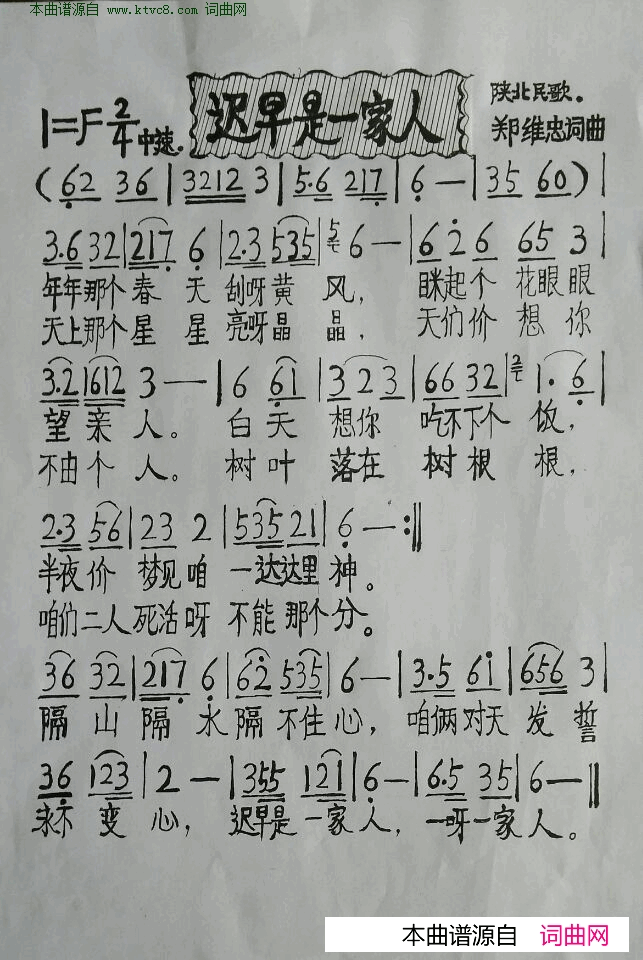 本曲谱源自 www.ktvc8.com 词曲网
1=F 2/4 中速. 迟早是一家人 陕北民歌.
郑维忠词曲
(62 36|3212 3|5·6 217|6—|35 60)|
3·6 32|217 6|2·3 535|5 6—|6 2 6 65 3|
年年那个春天刮呀黄风, 眯起个花眼眼
天上那个星星亮呀晶晶, 天们价想你
3·2 1612 3—|6 61|3 2 3|66 32|2 1·6|
望亲人。白天想你吃不下个饭,
不由个人。树叶落在树根根,
2·3 56|23 2|535 21|6—:‖
半夜价梦见咱一达达里神。
咱们二人死活呀不能那个分。
36 32|217 6|62 535|6—|3·5 61|656 3|
隔山隔水隔不住心, 咱俩对天发誓
36 123|2—|355 121|6—|6·5 35|6—‖
永不变心, 迟早是一家人, 一呀一家人。
本曲谱源自 词曲网